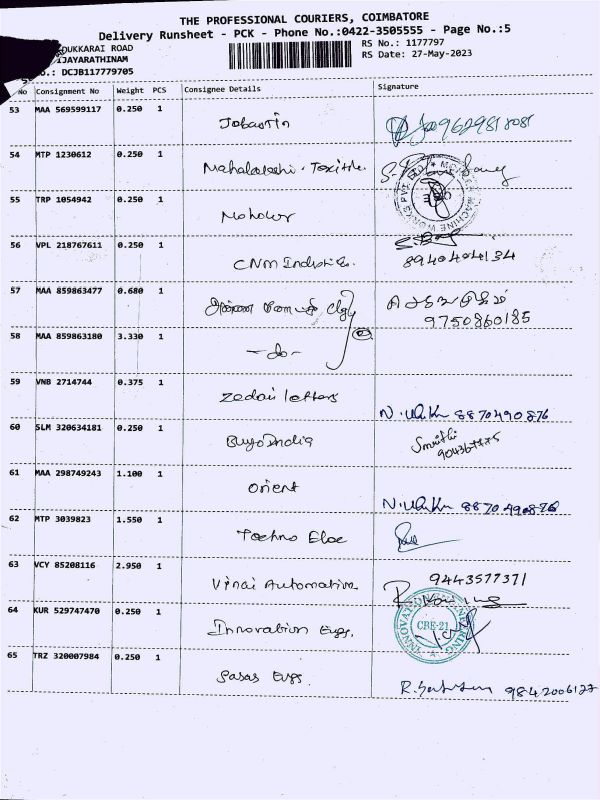 THE PROFESSIONAL COURIERS, COIMBATORE
Delivery Runsheet - PCK - Phone No.:0422-3505555 - Page No.:5
DUKKARAI ROAD
IJAYARATHINAM
o.: DCJB117779705
RS No.: 1177797
RS Date: 27-May-2023
No Consignment No Weight PCS Consignee Details Signature
53 MAA 569599117 0.250 1 Jobastin
54 MTP 1230612 0.250 1 Mahalakshi
55 TRP 1054942 0.250 1
56 VPL 218767611 0.250 1 CNM 8940404134
57 MAA 859863477 0.680 1 9750860185
58 MAA 859863180 3.330 1 -do-
59 VNB 2714744 0.375 1 Zedair letters N. 8870490876
60 SLM 320634181 0.250 1 Buyo India Smrithi
61 MAA 298749243 1.100 1 Orient N. 8870490876
62 MTP 3039823 1.550 1 Techno Elec
63 VCY 85208116 2.950 1 Vinai Automative 9443577371
64 KUR 529747470 0.250 1 Innovation Engs. INNOVATION ENGINEERING CBE-21
65 TRZ 320007984 0.250 1 Sasas Engs.